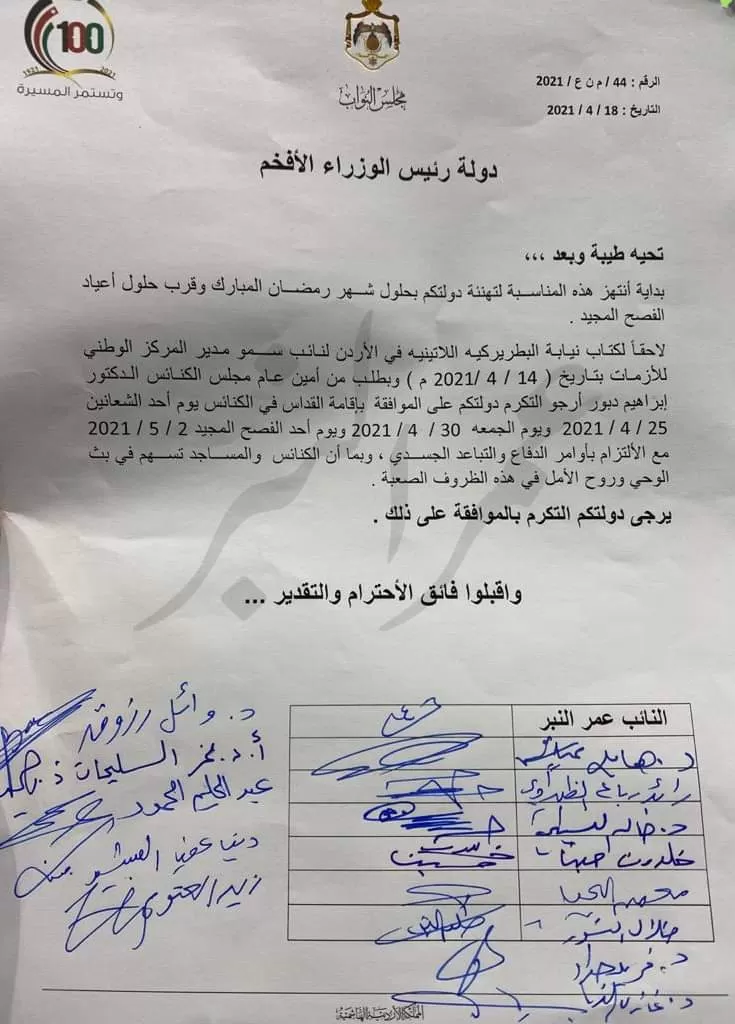 100
1921 2021
وتستمر المسيرة
مجلس النواب
الرقم : 44 / م ن ع / 2021
التاريخ : 18 / 4 / 2021
دولة رئيس الوزراء الأفخم
تحيه طيبة وبعد ,,,
بداية أنتهز هذه المناسبة لتهنئة دولتكم بحلول شهر رمضان المبارك وقرب حلول أعياد
الفصح المجيد .
لاحقاً لكتاب نيابة البطريركيه اللاتينيه في الأردن لنائب سمو مدير المركز الوطني
للأزمات بتاريخ ( 14 / 4 /2021 م ) وبطلب من أمين عام مجلس الكنائس الدكتور
إبراهيم دبور أرجو التكرم دولتكم على الموافقة بإقامة القداس في الكنائس يوم أحد الشعانين
25 / 4 / 2021 ويوم الجمعه 30 / 4 / 2021 ويوم أحد الفصح المجيد 2 / 5 / 2021
مع الألتزام بأوامر الدفاع والتباعد الجسدي ، وبما أن الكنائس والمساجد تسهم في بث
الوحي وروح الأمل في هذه الظروف الصعبة .
يرجى دولتكم التكرم بالموافقة على ذلك .
واقبلوا فائق الأحترام والتقدير ...
النائب عمر النبر
د. هايل عياش
رائد رباع الظهراوي
خلدون حينا
محمد
طلال النسور
د. فريد حداد
د. وائل رزوق
أ.د. محمد السليحات
عبد الحليم الحمود
دينا عوني البشير
زيد العتوم
المملكة الأردنية الهاشمية
عمر النبر